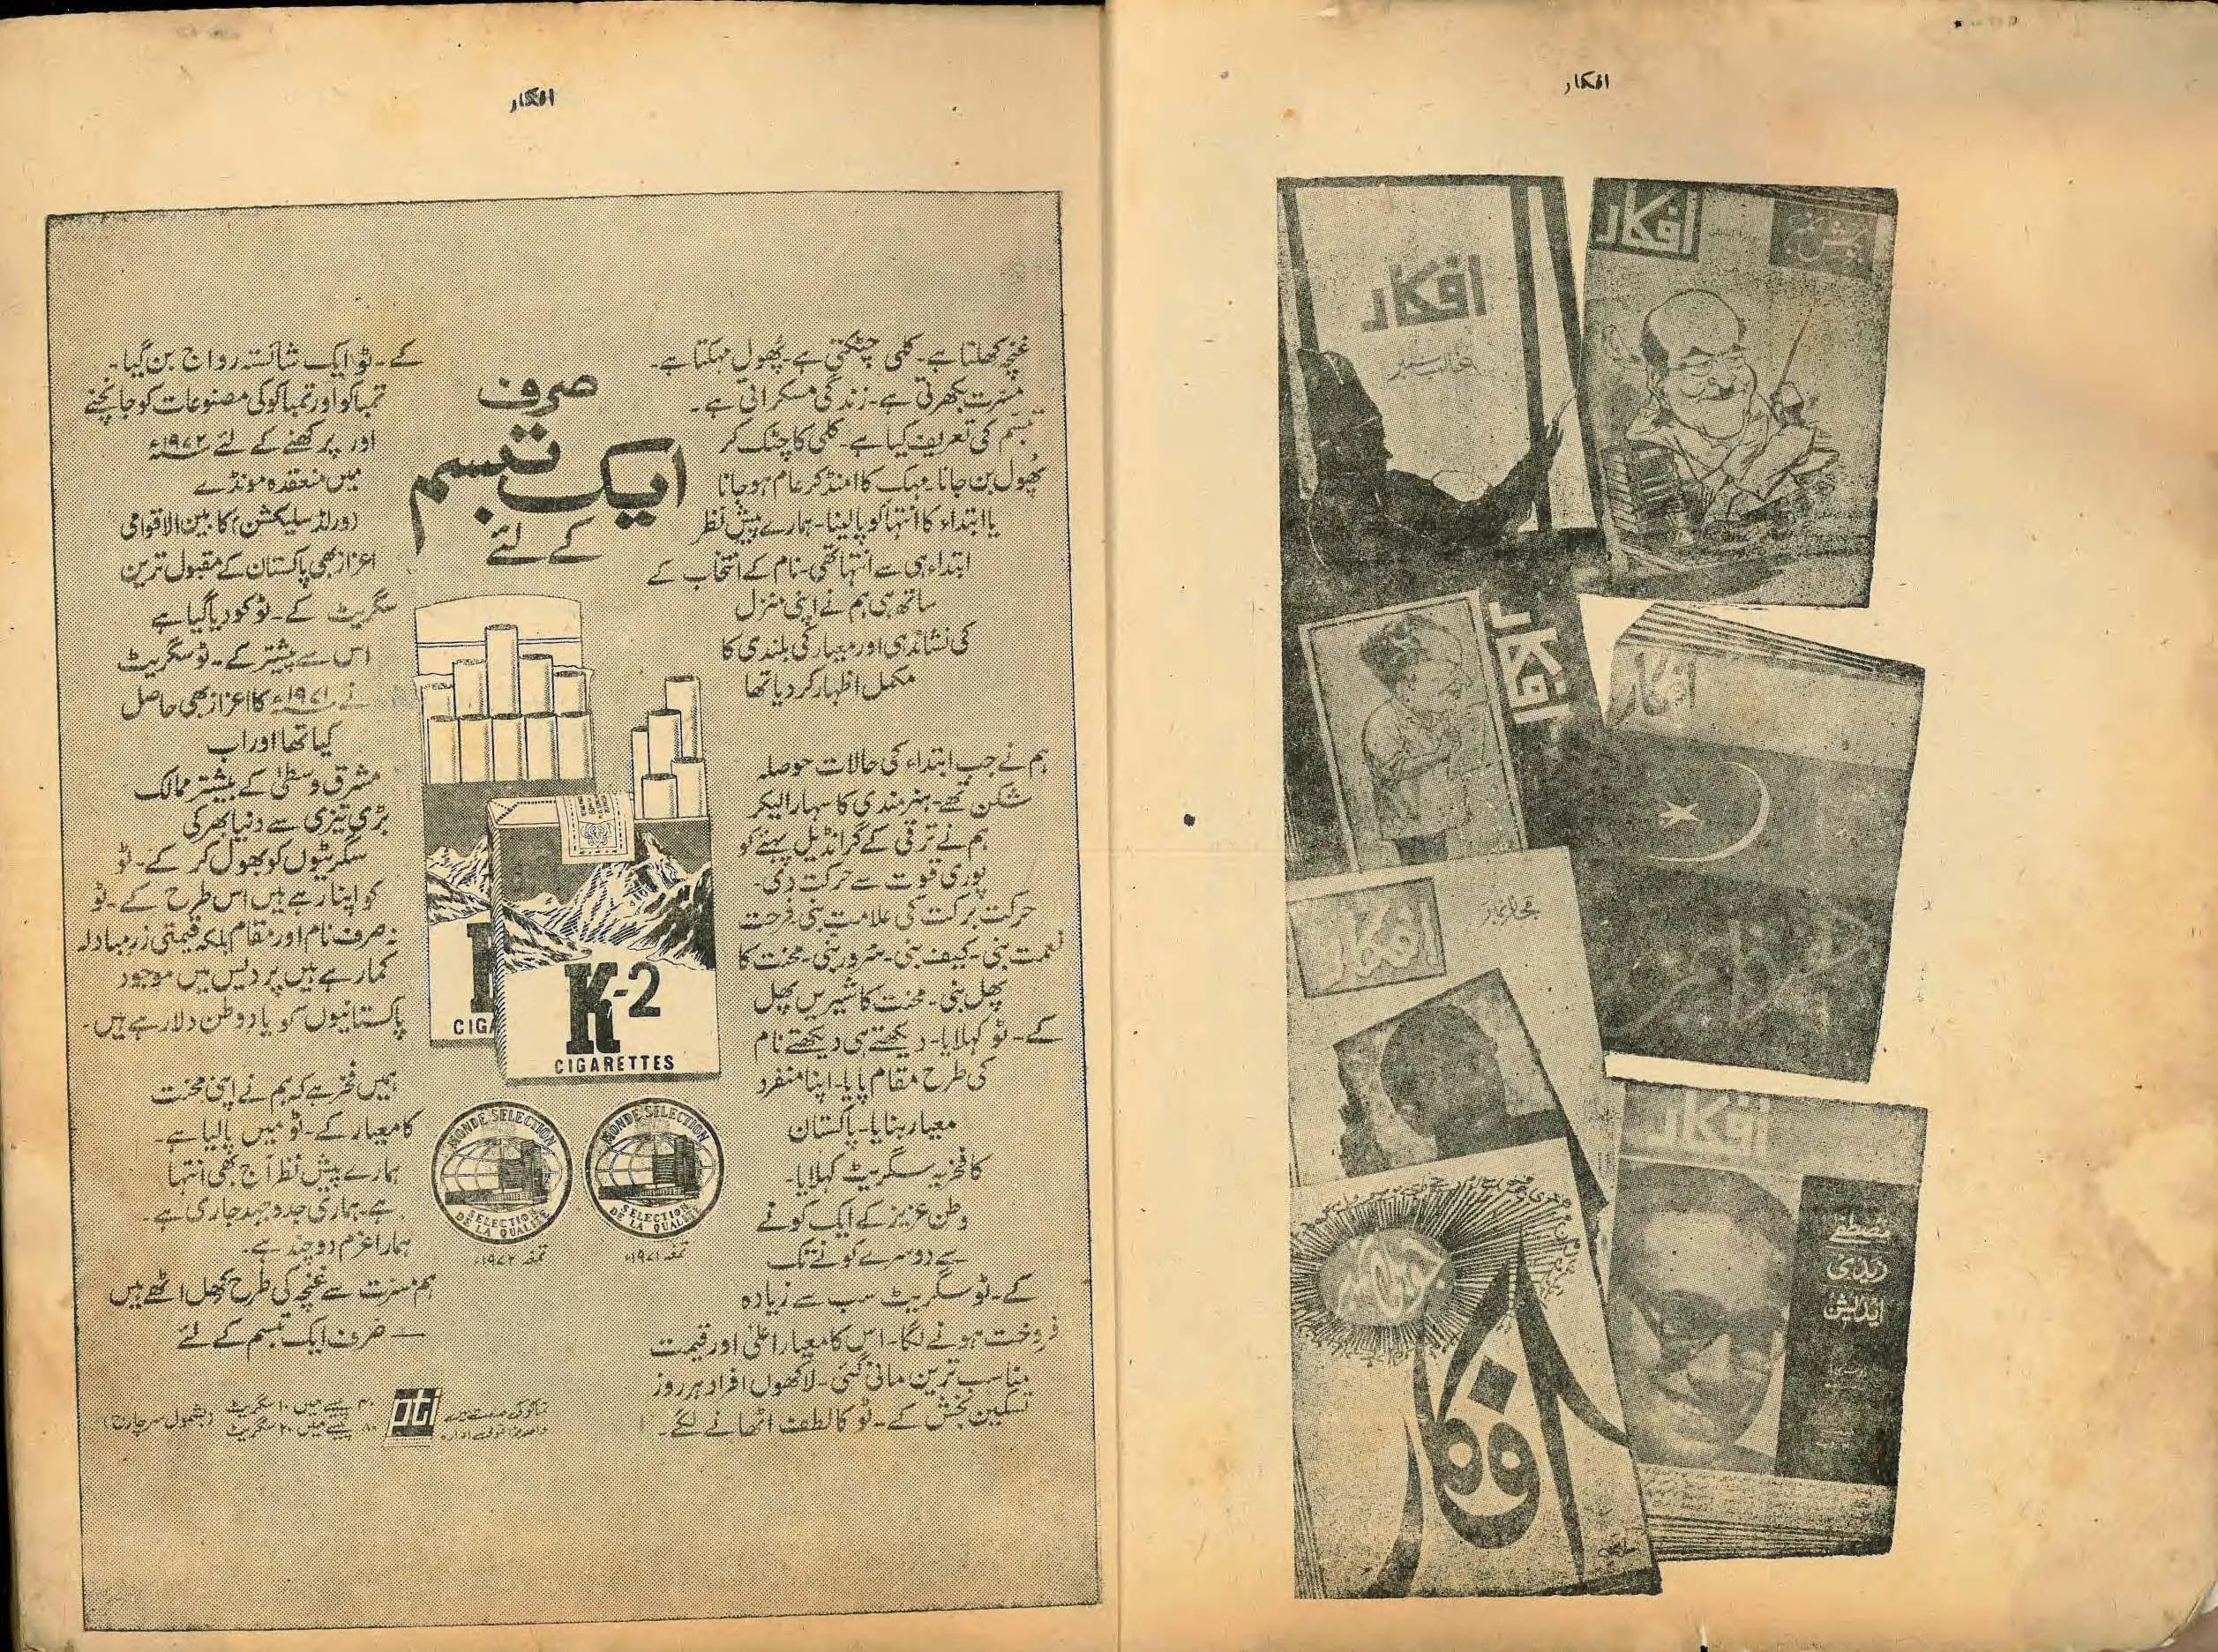 افکار
غنچہ کھلتا ہے۔ کلی چٹکتی ہے۔ پھول مہکتا ہے۔
مسرت بکھرتی ہے۔ زندگی مسکراتی ہے۔
تبسم کی تعریف کیا ہے۔ کلی کا چٹک کر
پھول بن جانا۔ مہک کا امنڈ کر عام ہو جانا
یا ابتداء کا انتہا کو پا لینا۔ ہمارے پیش نظر
ابتداء ہی سے انتہا تھی۔ نام کے انتخاب کے
ساتھ ہی ہم نے اپنی منزل
کی نشاندہی اور معیار کی بلندی کا
مکمل اظہار کر دیا تھا
ہم نے جب ابتداء کی حالات حوصلہ
شکن تھے۔ ہنرمندی کا سہارا لیکر
ہم نے ترقی کے گرانڈیل پہیئے کو
پوری قوت سے حرکت دی۔
حرکت برکت کی علامت بنی۔ فرحت
نعمت بنی۔ کیف بنی۔ سرور بنی۔ محنت کا
پھل بنی۔ محنت کا شیریں پھل
کے۔ٹو کہلایا۔ دیکھتے ہی دیکھتے نام
کی طرح مقام پایا۔ اپنا منفرد
معیار بنایا۔ پاکستان
کا فخریہ سگریٹ کہلایا۔
وطن عزیز کے ایک کونے
سے دوسرے کونے تک
کے۔ٹو سگریٹ سب سے زیادہ
فروخت ہونے لگا۔ اس کا معیار اعلیٰ اور قیمت
مناسب ترین مانی گئی۔ لاکھوں افراد ہر روز
تسکین بخش کے۔ٹو کا لطف اٹھانے لگے۔
صرف
ایک تبسم
کے لئے
K-2
CIGARETTES
MONDE SELECTION
SELECTION
DE LA QUALITE
تمغہ ۱۹۷۱ء
MONDE SELECTION
SELECTION
DE LA QUALITE
تمغہ ۱۹۷۲ء
کے۔ٹو ایک شائستہ رواج بن گیا۔
تمباکو اور تمباکو کی مصنوعات کو جانچنے
اور پرکھنے کے لئے ۱۹۷۲ء
میں منعقدہ مونڈے
(ورلڈ سلیکشن) کا بین الاقوامی
اعزاز بھی پاکستان کے مقبول ترین
سگریٹ کے۔ٹو کو دیا گیا ہے
اس سے پیشتر کے۔ٹو سگریٹ
نے ۱۹۷۱ء کا اعزاز بھی حاصل
کیا تھا اور اب
مشرق وسطیٰ کے بیشتر ممالک
بڑی تیزی سے دنیا بھر کی
سگریٹوں کو بھول کر کے۔ٹو
کو اپنا رہے ہیں اس طرح کے۔ٹو
نہ صرف نام اور مقام بلکہ قیمتی زرمبادلہ
کما رہے ہیں پردیس میں موجود
پاکستانیوں کو یاد وطن دلا رہے ہیں۔
ہمیں فخر ہے کہ ہم نے اپنی محنت
کا معیار کے۔ٹو میں پا لیا ہے۔
ہمارے پیش نظر آج بھی انتہا
ہے۔ ہماری جدوجہد جاری ہے۔
ہمارا عزم دو چند ہے۔
ہم مسرت سے غنچہ کی طرح کھل اٹھے ہیں
— صرف ایک تبسم کے لئے
pti
۴۰ پیسے میں ۱۰ سگریٹ
۸۰ پیسے میں ۲۰ سگریٹ
(بشمول سرچارج)
افکار
افکار
غالب نمبر
افکار
جوش نمبر
افکار
افکار
افکار
مجاز نمبر
افکار
مصطفےٰ
زیدی
ایڈیشن
جوبلی نمبر
افکار